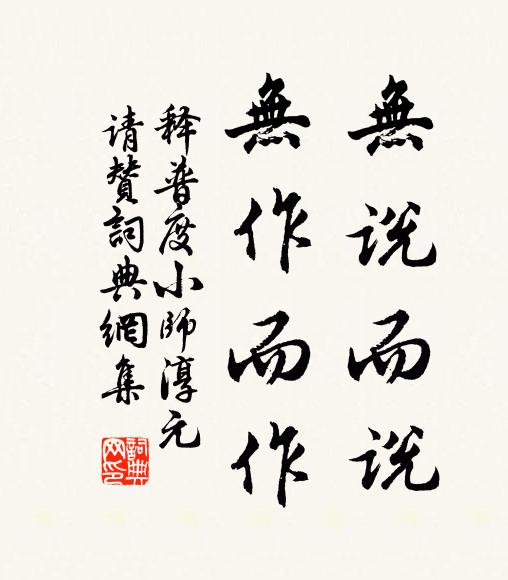 無说而说
無作而作
释普度小師淳元
请赞詞典網集
詞典网印